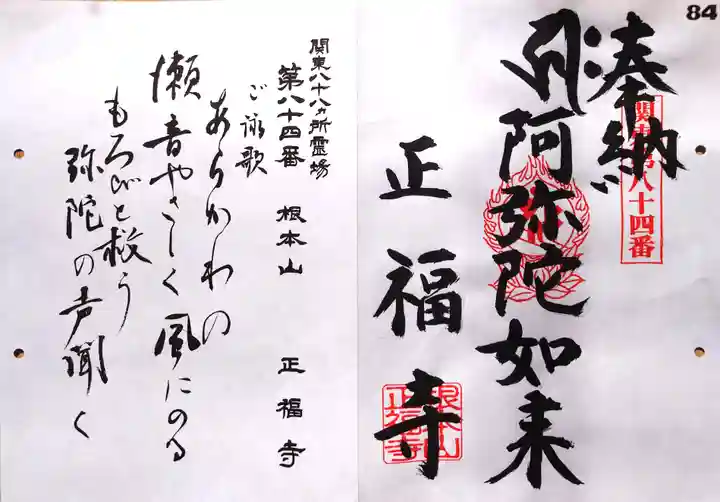 84
奉納
関東第八十四番
阿弥陀如来
正福寺
根本山正福寺
関東八十八ヵ所霊場
第八十四番 根本山 正福寺
ご詠歌
あらかわの
瀬音やさしく風にのる
もろびと救う
弥陀の声聞く